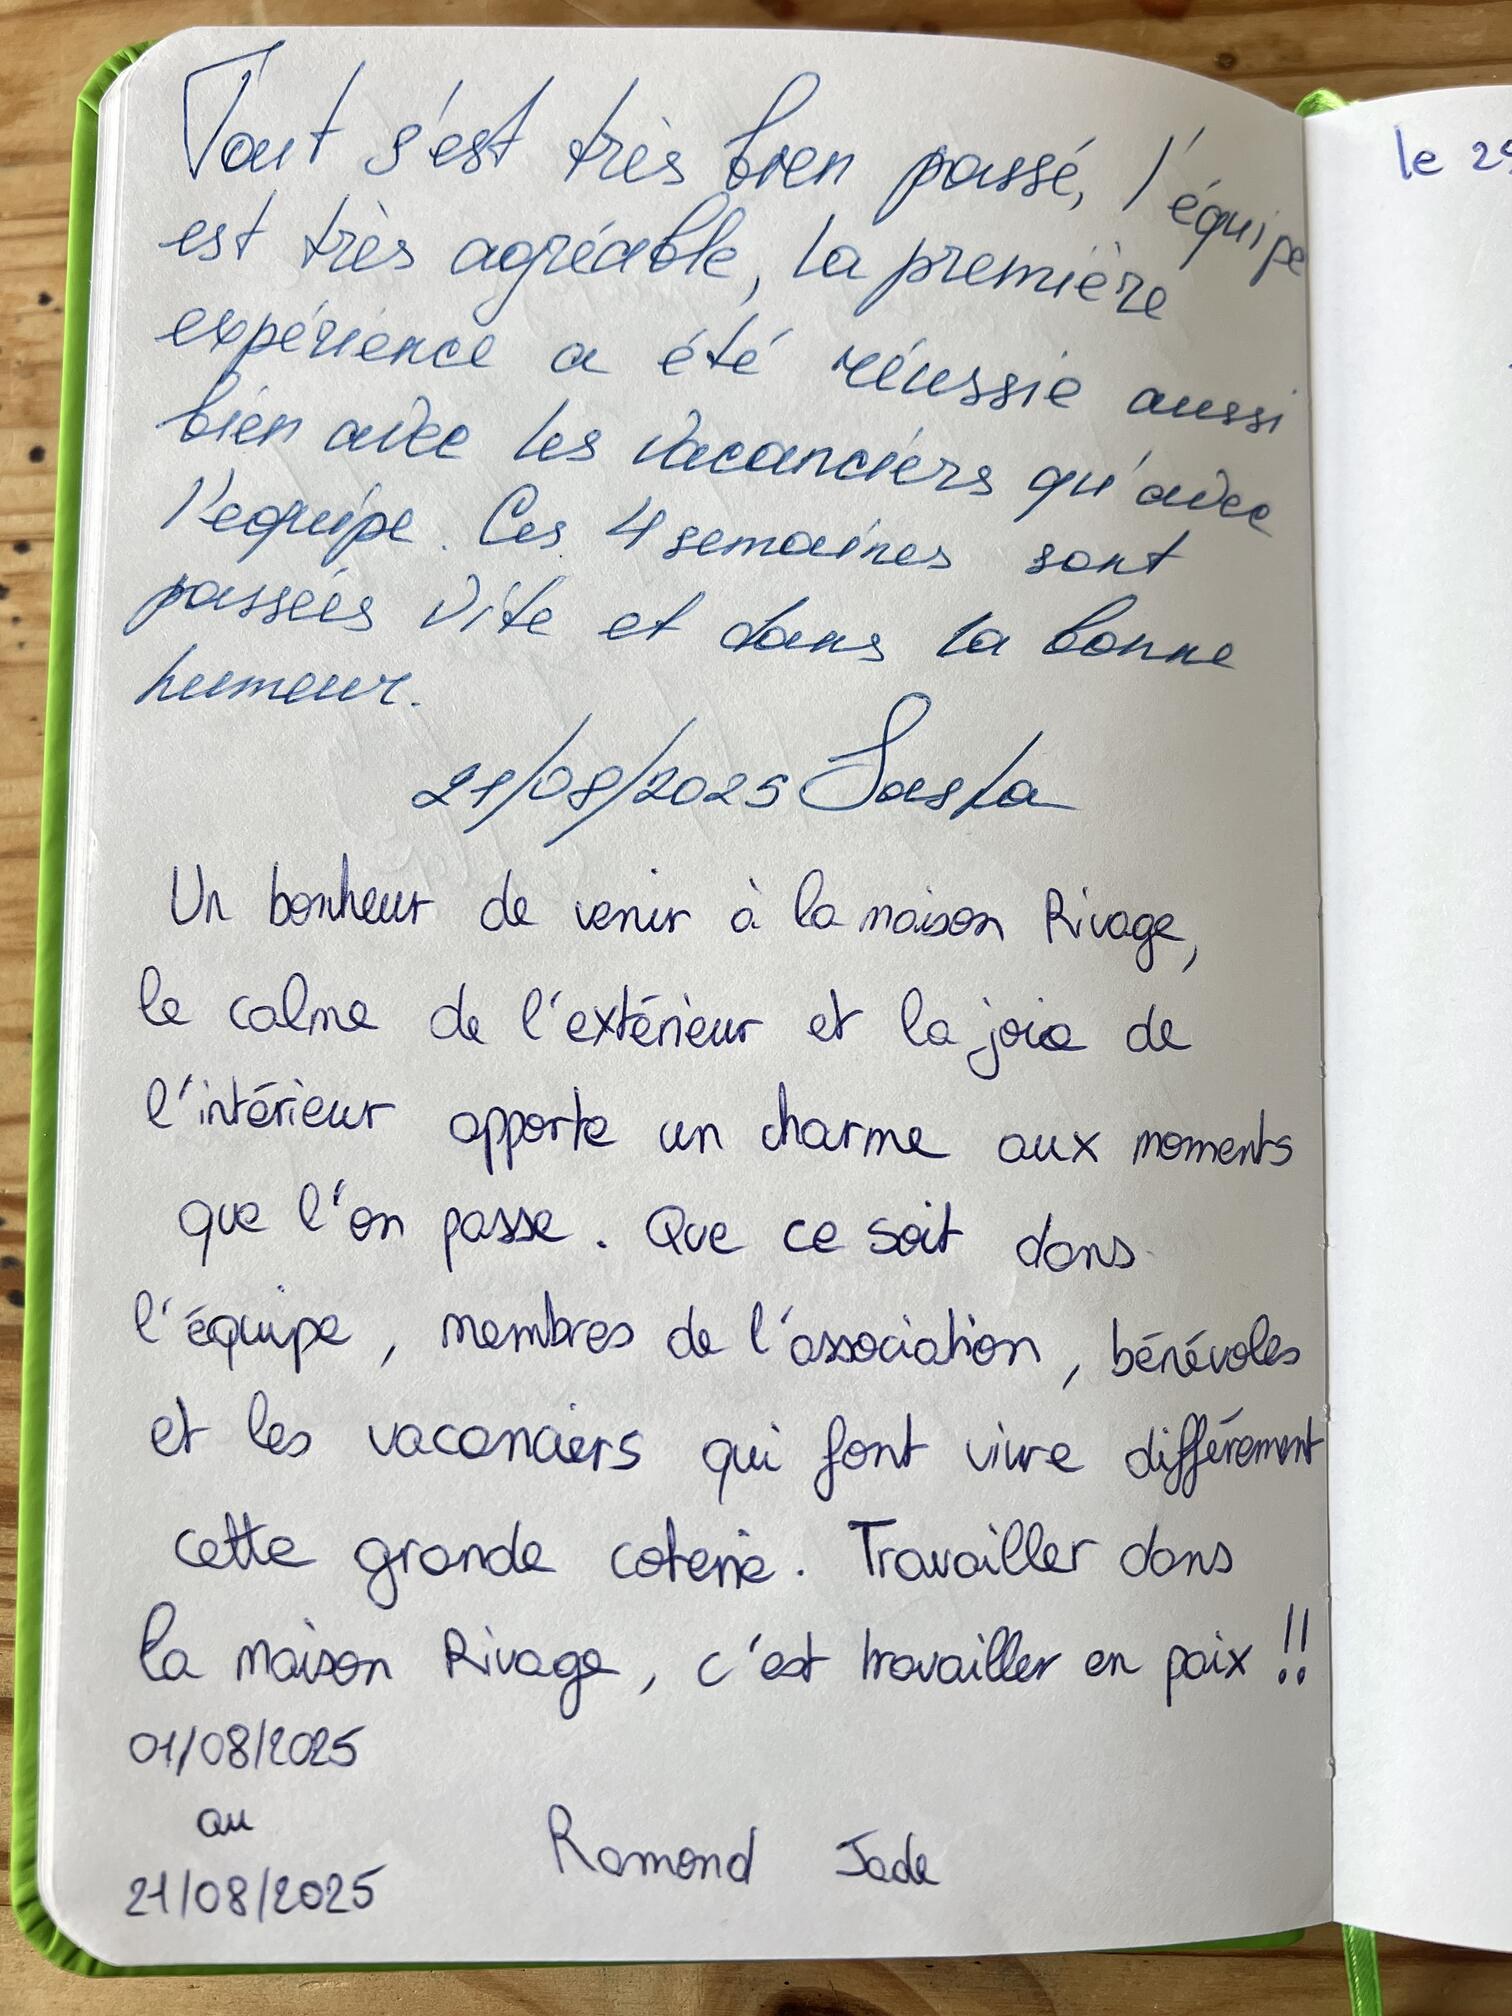 Tout s'est très bien passé, l'équipe
est très agréable, la première
expérience a été réussie aussi
bien avec les vacanciers qu'avec
l'equipe. Ces 4 semaines sont
passées vite et dans la bonne
humeur.
21/08/2025
Un bonheur de venir à la maison Rivage,
le calme de l'extérieur et la joie de
l'intérieur apporte un charme aux moments
que l'on passe. Que ce soit dans
l'équipe, membres de l'association, bénévoles
et les vacanciers qui font vivre différement
cette grande coterie. Travailler dans
la maison Rivage, c'est travailler en paix !!
01/08/2025
au
21/08/2025
Ramond Jade
le